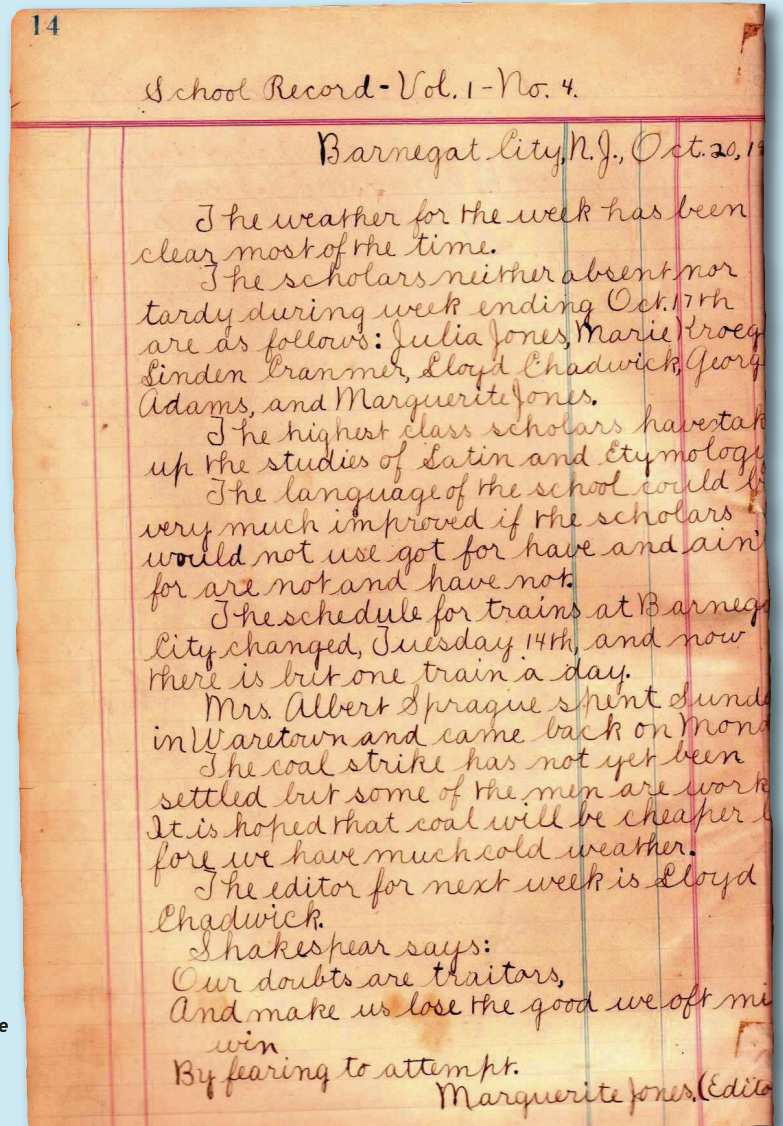 14
School Record - Vol. 1 - No. 4.
Barnegat City, N.J., Oct. 20, 1
The weather for the week has been
clear most of the time.
The scholars neither absent nor
tardy during week ending Oct. 17th
are as follows: Julia Jones, Marie Kroeg
Linden Cranmer, Lloyd Chadwick, Georg
Adams, and Marguerite Jones.
The highest class scholars have tak
up the studies of Latin and Etymology
The language of the school could b
very much improved if the scholars
would not use got for have and ain'
for are not and have not.
The schedule for trains at Barnega
City changed, Tuesday 14th, and now
there is but one train a day.
Mrs. Albert Sprague spent Sunda
in Waretown and came back on Mond
The coal strike has not yet been
settled but some of the men are work
It is hoped that coal will be cheaper b
fore we have much cold weather.
The editor for next week is Lloyd
Chadwick.
Shakespear says:
Our doubts are traitors,
And make us lose the good we oft mi
win
By fearing to attempt.
Marguerite Jones. (Edito
e